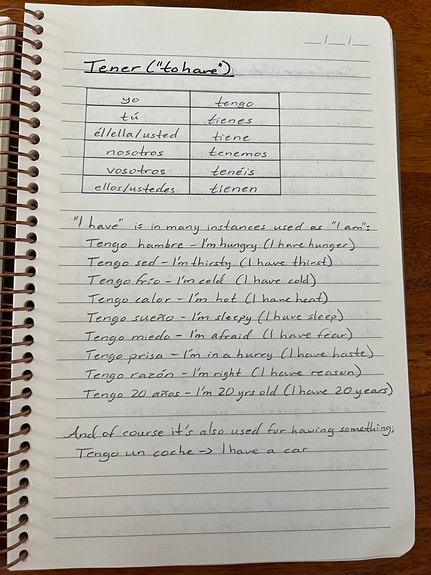 __/__/__
Tener ("to have")
yo tengo
tú tienes
él/ella/usted tiene
nosotros tenemos
vosotros tenéis
ellos/ustedes tienen
"I have" is in many instances used as "I am":
Tengo hambre - I'm hungry (I have hunger)
Tengo sed - I'm thirsty (I have thirst)
Tengo frío - I'm cold (I have cold)
Tengo calor - I'm hot (I have heat)
Tengo sueño - I'm sleepy (I have sleep)
Tengo miedo - I'm afraid (I have fear)
Tengo prisa - I'm in a hurry (I have haste)
Tengo razón - I'm right (I have reason)
Tengo 20 años - I'm 20 yrs old (I have 20 years)
And of course it's also used for having something;
Tengo un coche -> I have a car